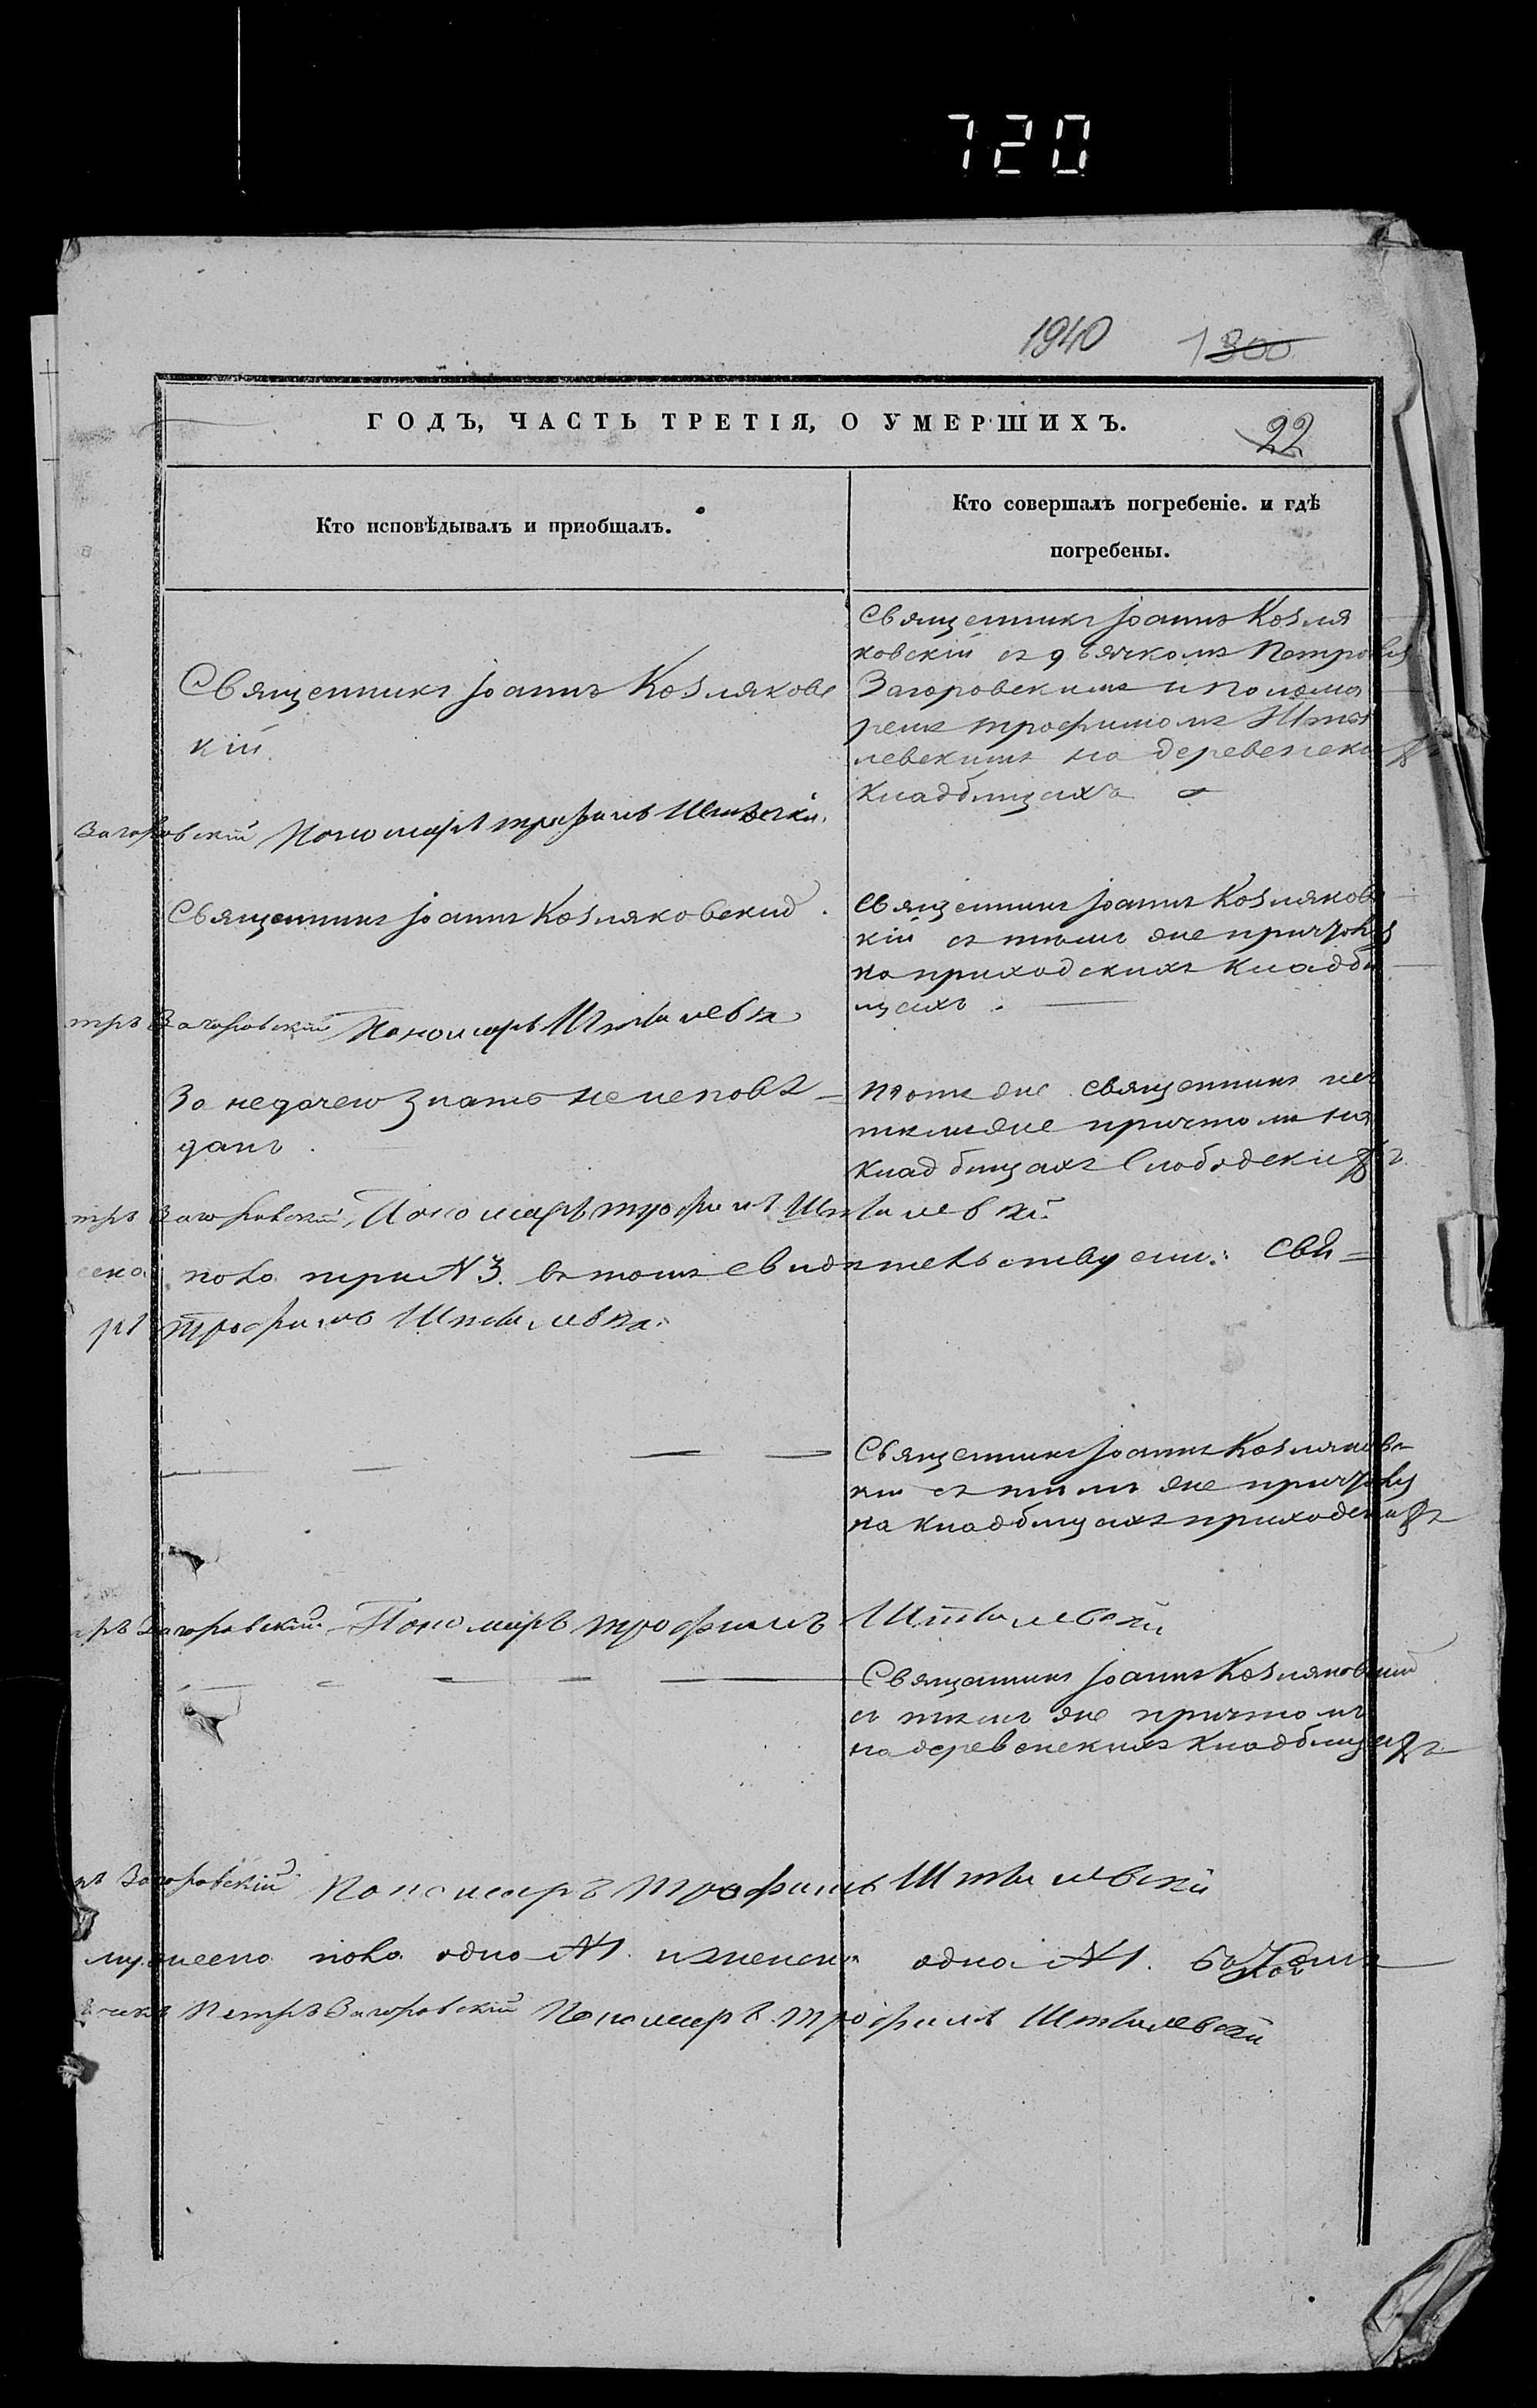 720
1940 1300
ГОДЪ, ЧАСТЬ ТРЕТІЯ, О УМЕРШИХЪ.
22
Кто исповѣдывалъ и пріобщалъ.
Кто совершалъ погребеніе. и гдѣ
погребены.
Священникъ Іоаннъ Козляковс
кій
Священникъ Іоаннъ Козля
ковскій съ дьячкомъ Петромъ
Загоровскимъ и Понома
ремъ Трофимомъ Штан
левскимъ на деревенскихъ
Кладбищахъ
Загоровскій Пономарь Трофимъ
Священникъ Іоаннъ Козляковскій
Священникъ Іоаннъ Козляковс
кій съ тѣмъ же причтомъ
на приходскихъ кладби
щахъ
тръ Загоровскій Пономарь
За недачею знать неисповѣ=
данъ
Тотъ же священникъ съ
тѣмъ же причтомъ на
Кладбищахъ Слободскихъ
тръ Загоровскій Пономарь Трофимъ
пола три №3. въ томъ свидѣтельствуемъ: Свя=
рь Трофимъ
Священникъ Іоаннъ Козляковс
кій съ тѣмъ же причтомъ
на кладбищахъ приходскихъ
тръ Загоровскій Пономарь Трофимъ
Священникъ Іоаннъ Козляковскій
съ тѣмъ же причтомъ
на деревенскихъ Кладбищахъ
ръ Загоровскій Пономарь Трофимъ
мужеска пола одно №1. женска одна №1.
ячекъ Петръ Загоровскій Пономарь Трофимъ